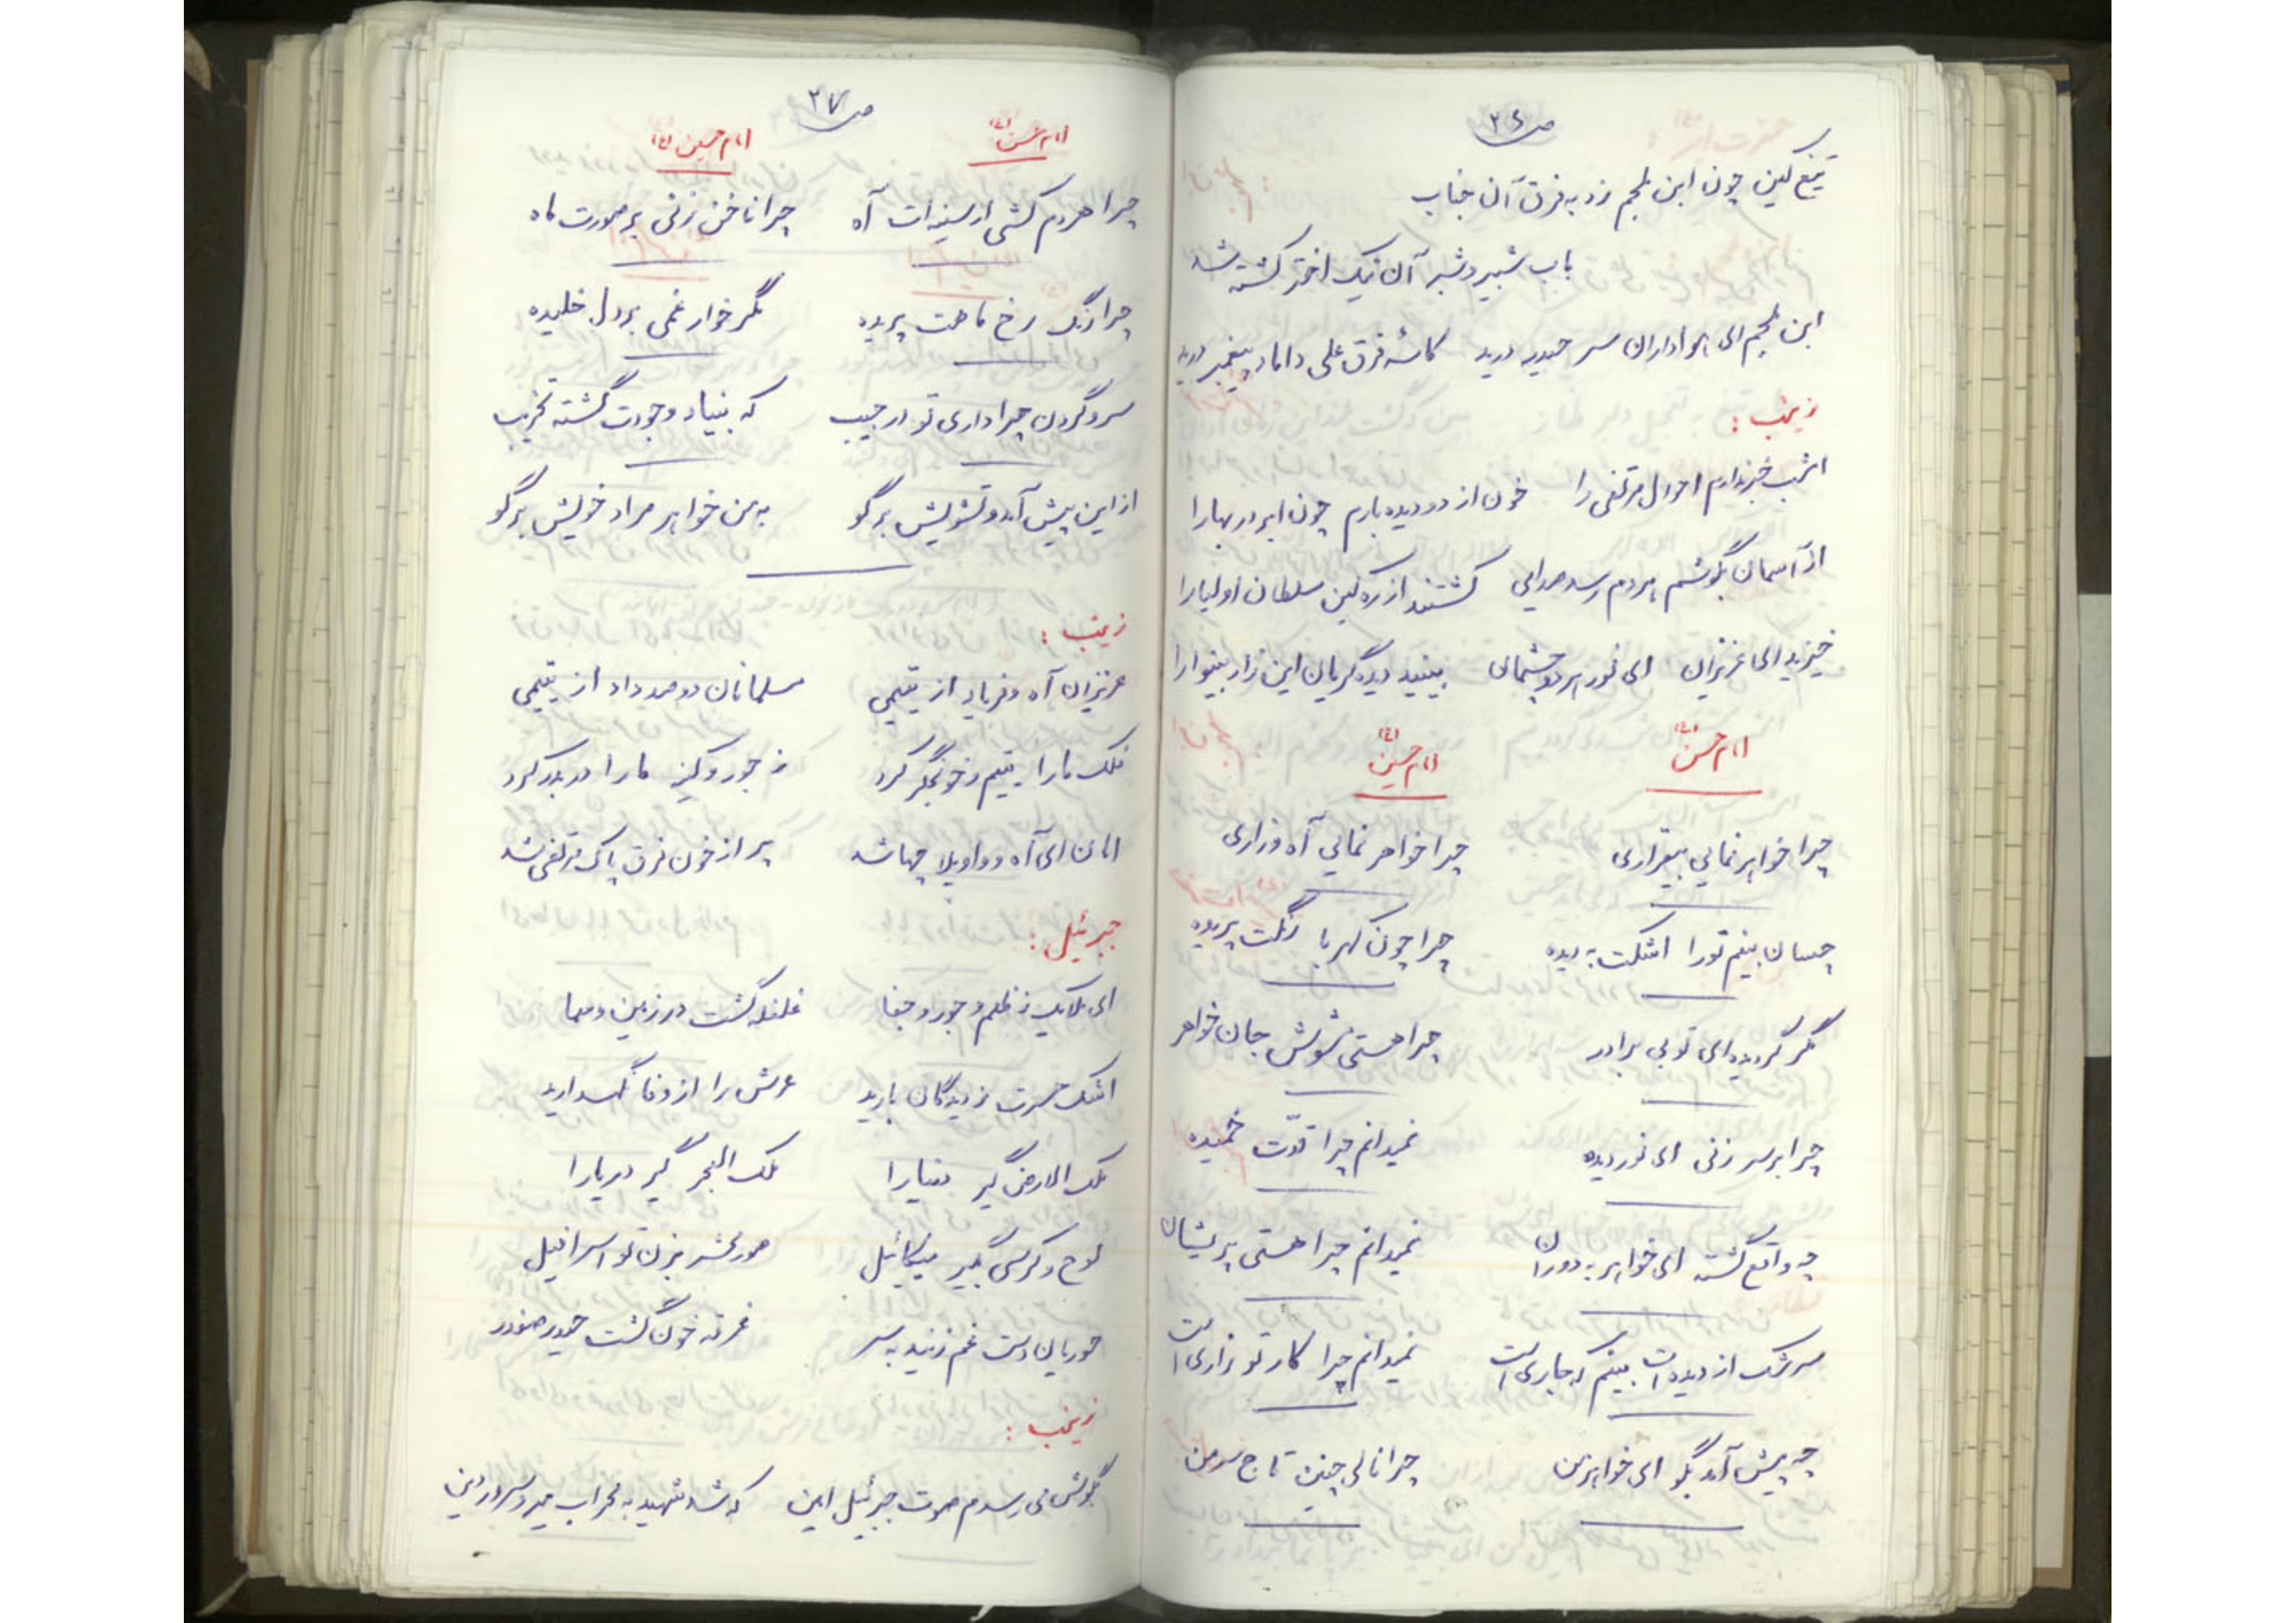 ص ۲۶
تیغ کین چون ابن ملجم زد به فرق آن جناب
باب شبیر و شبر آن نیک اختر کشته شد
ابن ملجم ای هواداران سر حیدر درید کاسه فرق علی داماد پیغمبر درید
زینب :
امشب خبر ندارم احوال مرتضی را خون از دو دیده بارم چون ابر در بهارا
از آسمان بگوشم هردم رسد صدایی کشتند از ره کین سلطان اولیا را
خیزید ای عزیزان ای نور هر دو چشمان ببینید دیده گریان این زار بینوا را
امام حسن (ع) امام حسین (ع)
چرا خواهر نمایی بیقراری چرا خواهر نمایی آه و زاری
چسان بینم تورا اشکت به دیده چرا چون کهربا رنگت پریده
مگر گردیده ای تو بی برادر چرا هستی مشوش جان خواهر
چرا بر سر زنی ای نور دیده نمیدانم چرا قدّت خمیده
چه واقع گشته ای خواهر به دوران نمیدانم چرا هستی پریشان
سرشک از دیده ات بینم که جاری است نمیدانم چرا کار تو زاری است
چه پیش آمد بگو ای خواهر من چرا نالی چنین تاج سر من
ص ۲۷
امام حسن (ع) امام حسین (ع)
چرا هردم کشی از سینه ات آه چرا ناخن زنی بر صورت ماه
چرا رنگ رخ ماهت پریده مگر خوار غمی بر دل خلیده
سر و گردن چرا داری تو در جیب که بنیاد وجودت گشته تخریب
از این پیش آمد و تشویش برگو به من خواهر مراد خویش برگو
زینب :
عزیزان آه و فریاد از یتیمی مسلمانان دو صد داد از یتیمی
فلک مارا یتیم و خونجگر کرد ز جور و کین مارا در بدر کرد
امان ای آه و واویلا چها شد پر از خون فرق پاک مرتضی شد
جبرئیل :
ای ملایک ز ظلم و جور و جفا غلغله گشت در زمین و سما
اشک حسرت ز دیدگان بارید عرش را از وفا نگهدارید
ملک الارض گیر دنیا را ملک البحر گیر دریا را
لوح و کرسی بگیر میکائیل صور محشر بزن تو اسرافیل
حوریان دست غم زنید به سر غرقه خون گشت حیدر صفدر
زینب :
بگوش می رسدم صوت جبرئیل امین که شد شهید به محراب میر و سرور دین